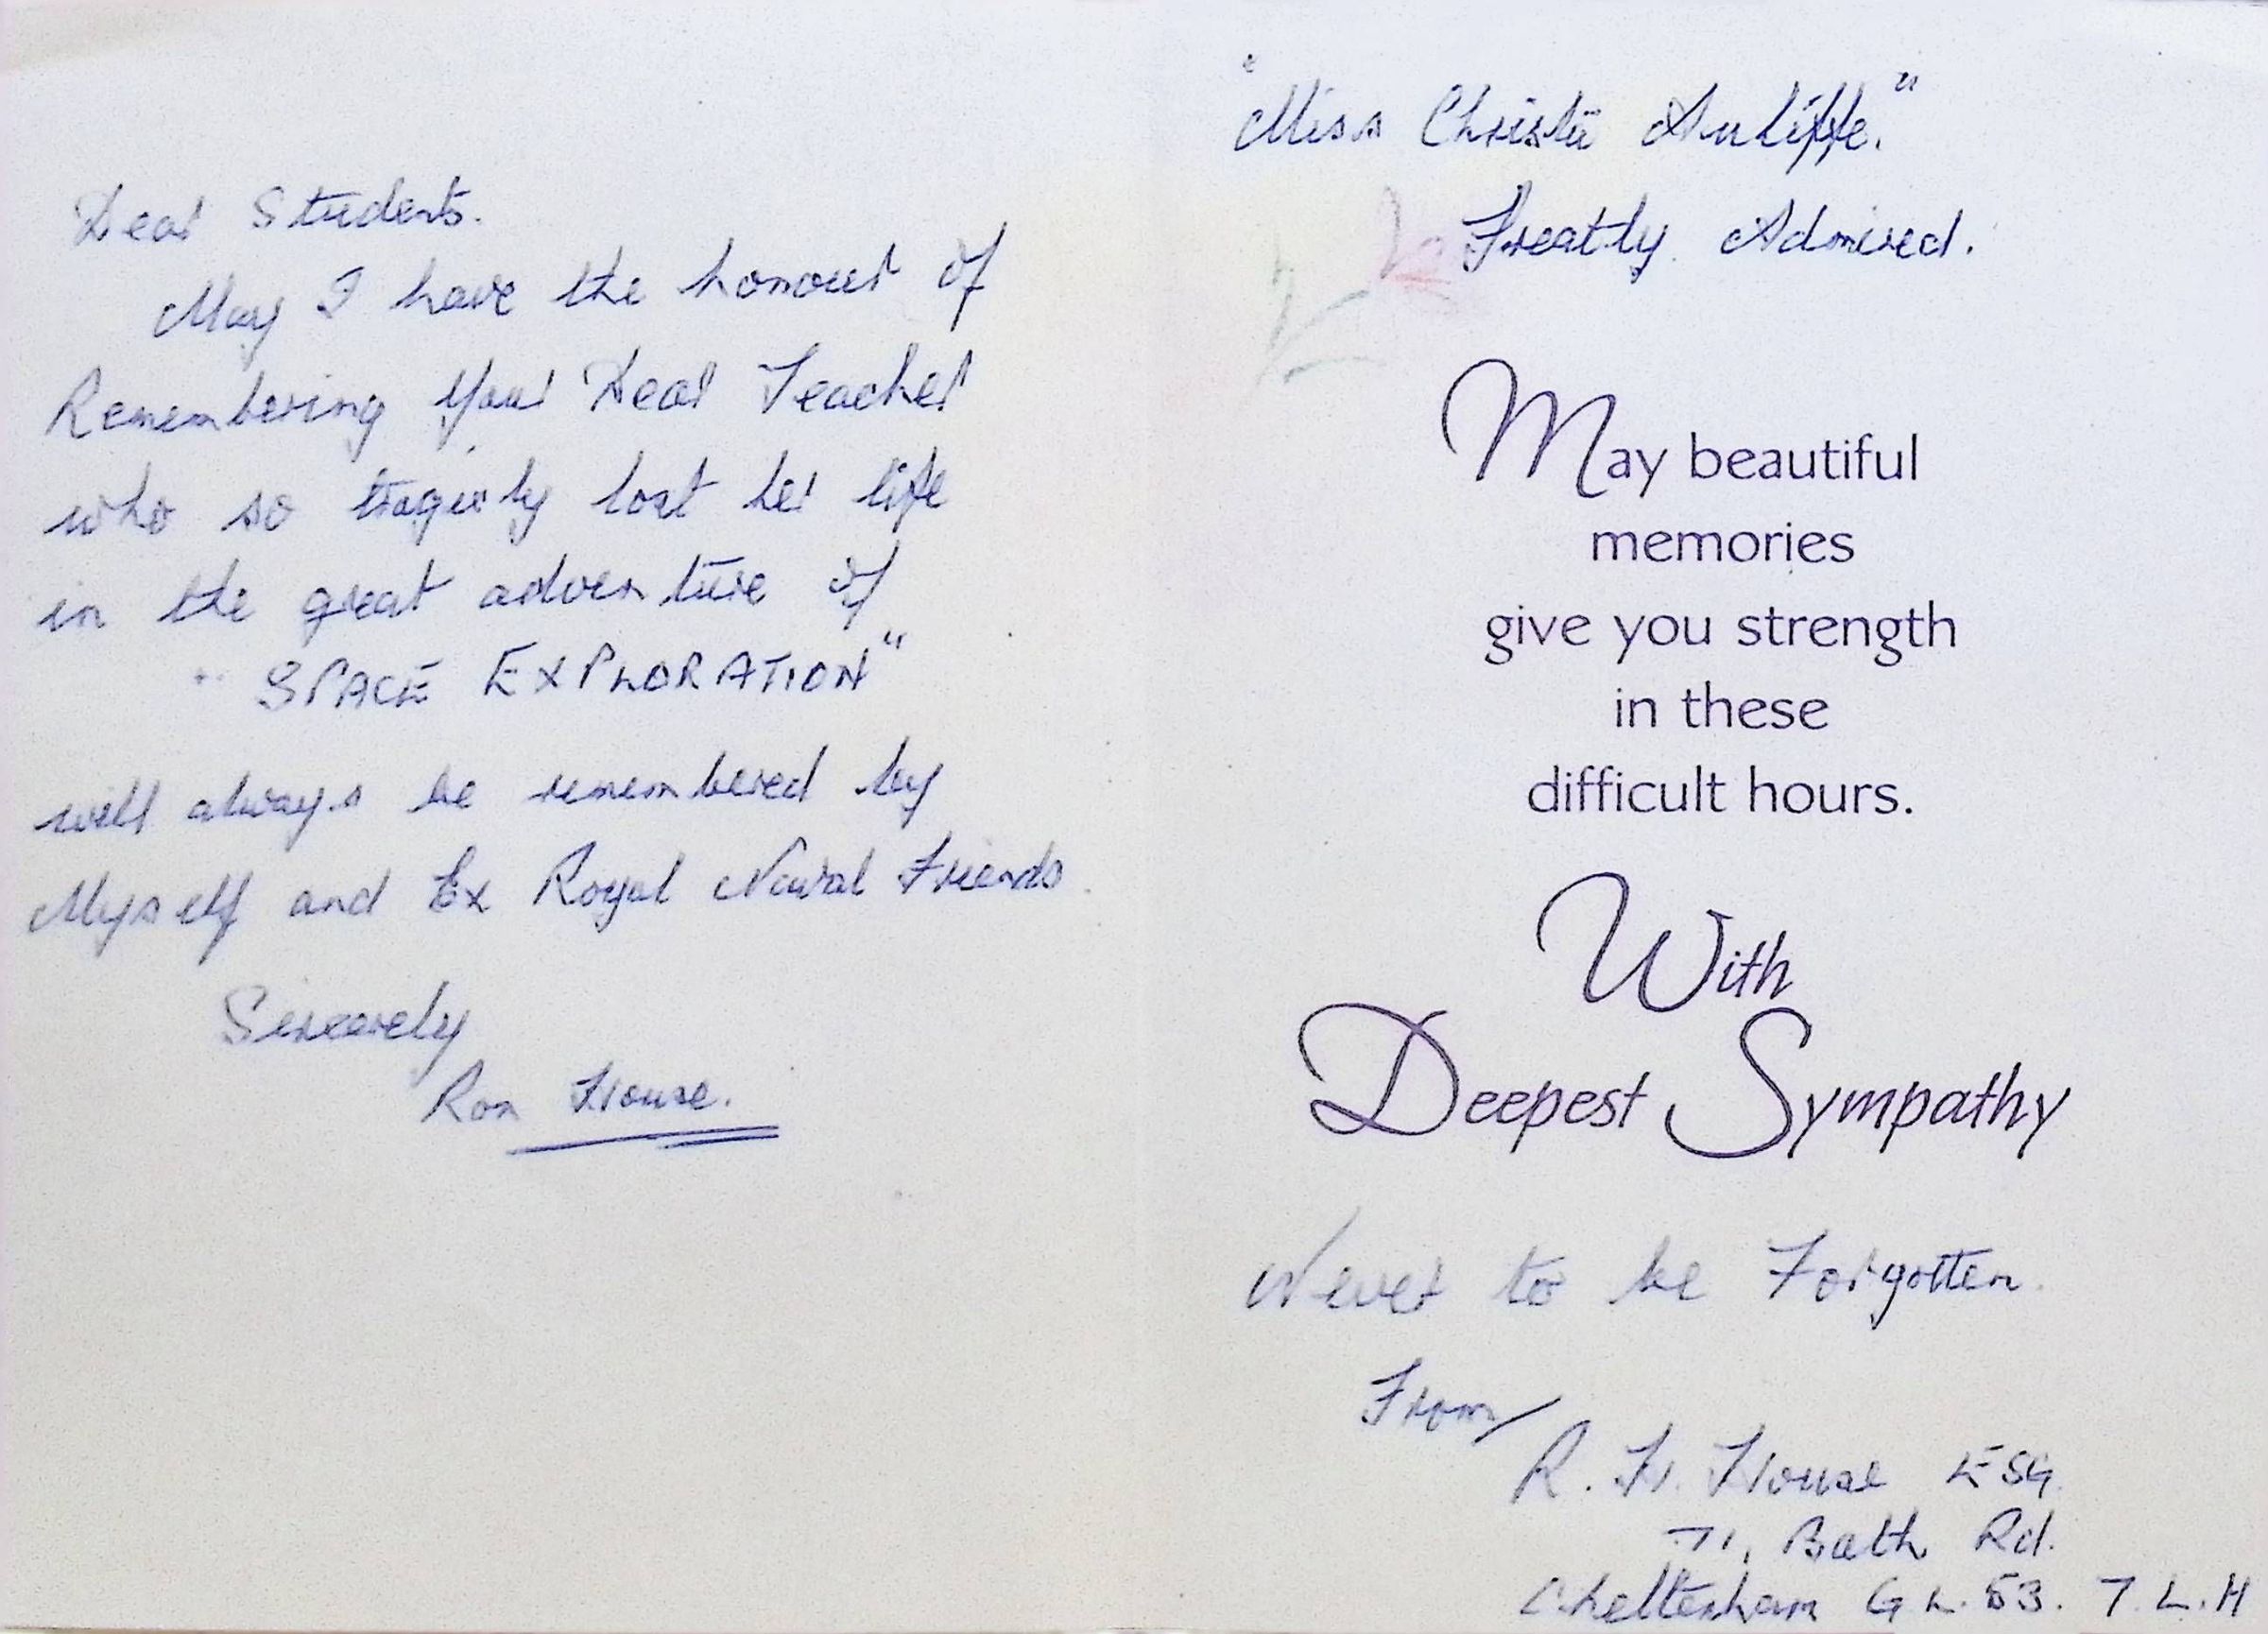 Dear Students.
May I have the honour of
Remembering Your Dear Teacher
who so tragicly lost her life
in the great adventure of
" SPACE EXPLORATION"
will always be remembered by
Myself and Ex Royal Naval Friends.
Sincerely
Ron House.
"Miss Christie Auliffe."
Greatly Admired.
May beautiful
memories
give you strength
in these
difficult hours.
With
Deepest Sympathy
Never to be Forgotten.
From
R. H. House ESQ.
71, Bath Rd.
Cheltenham GL.53. 7.L.H